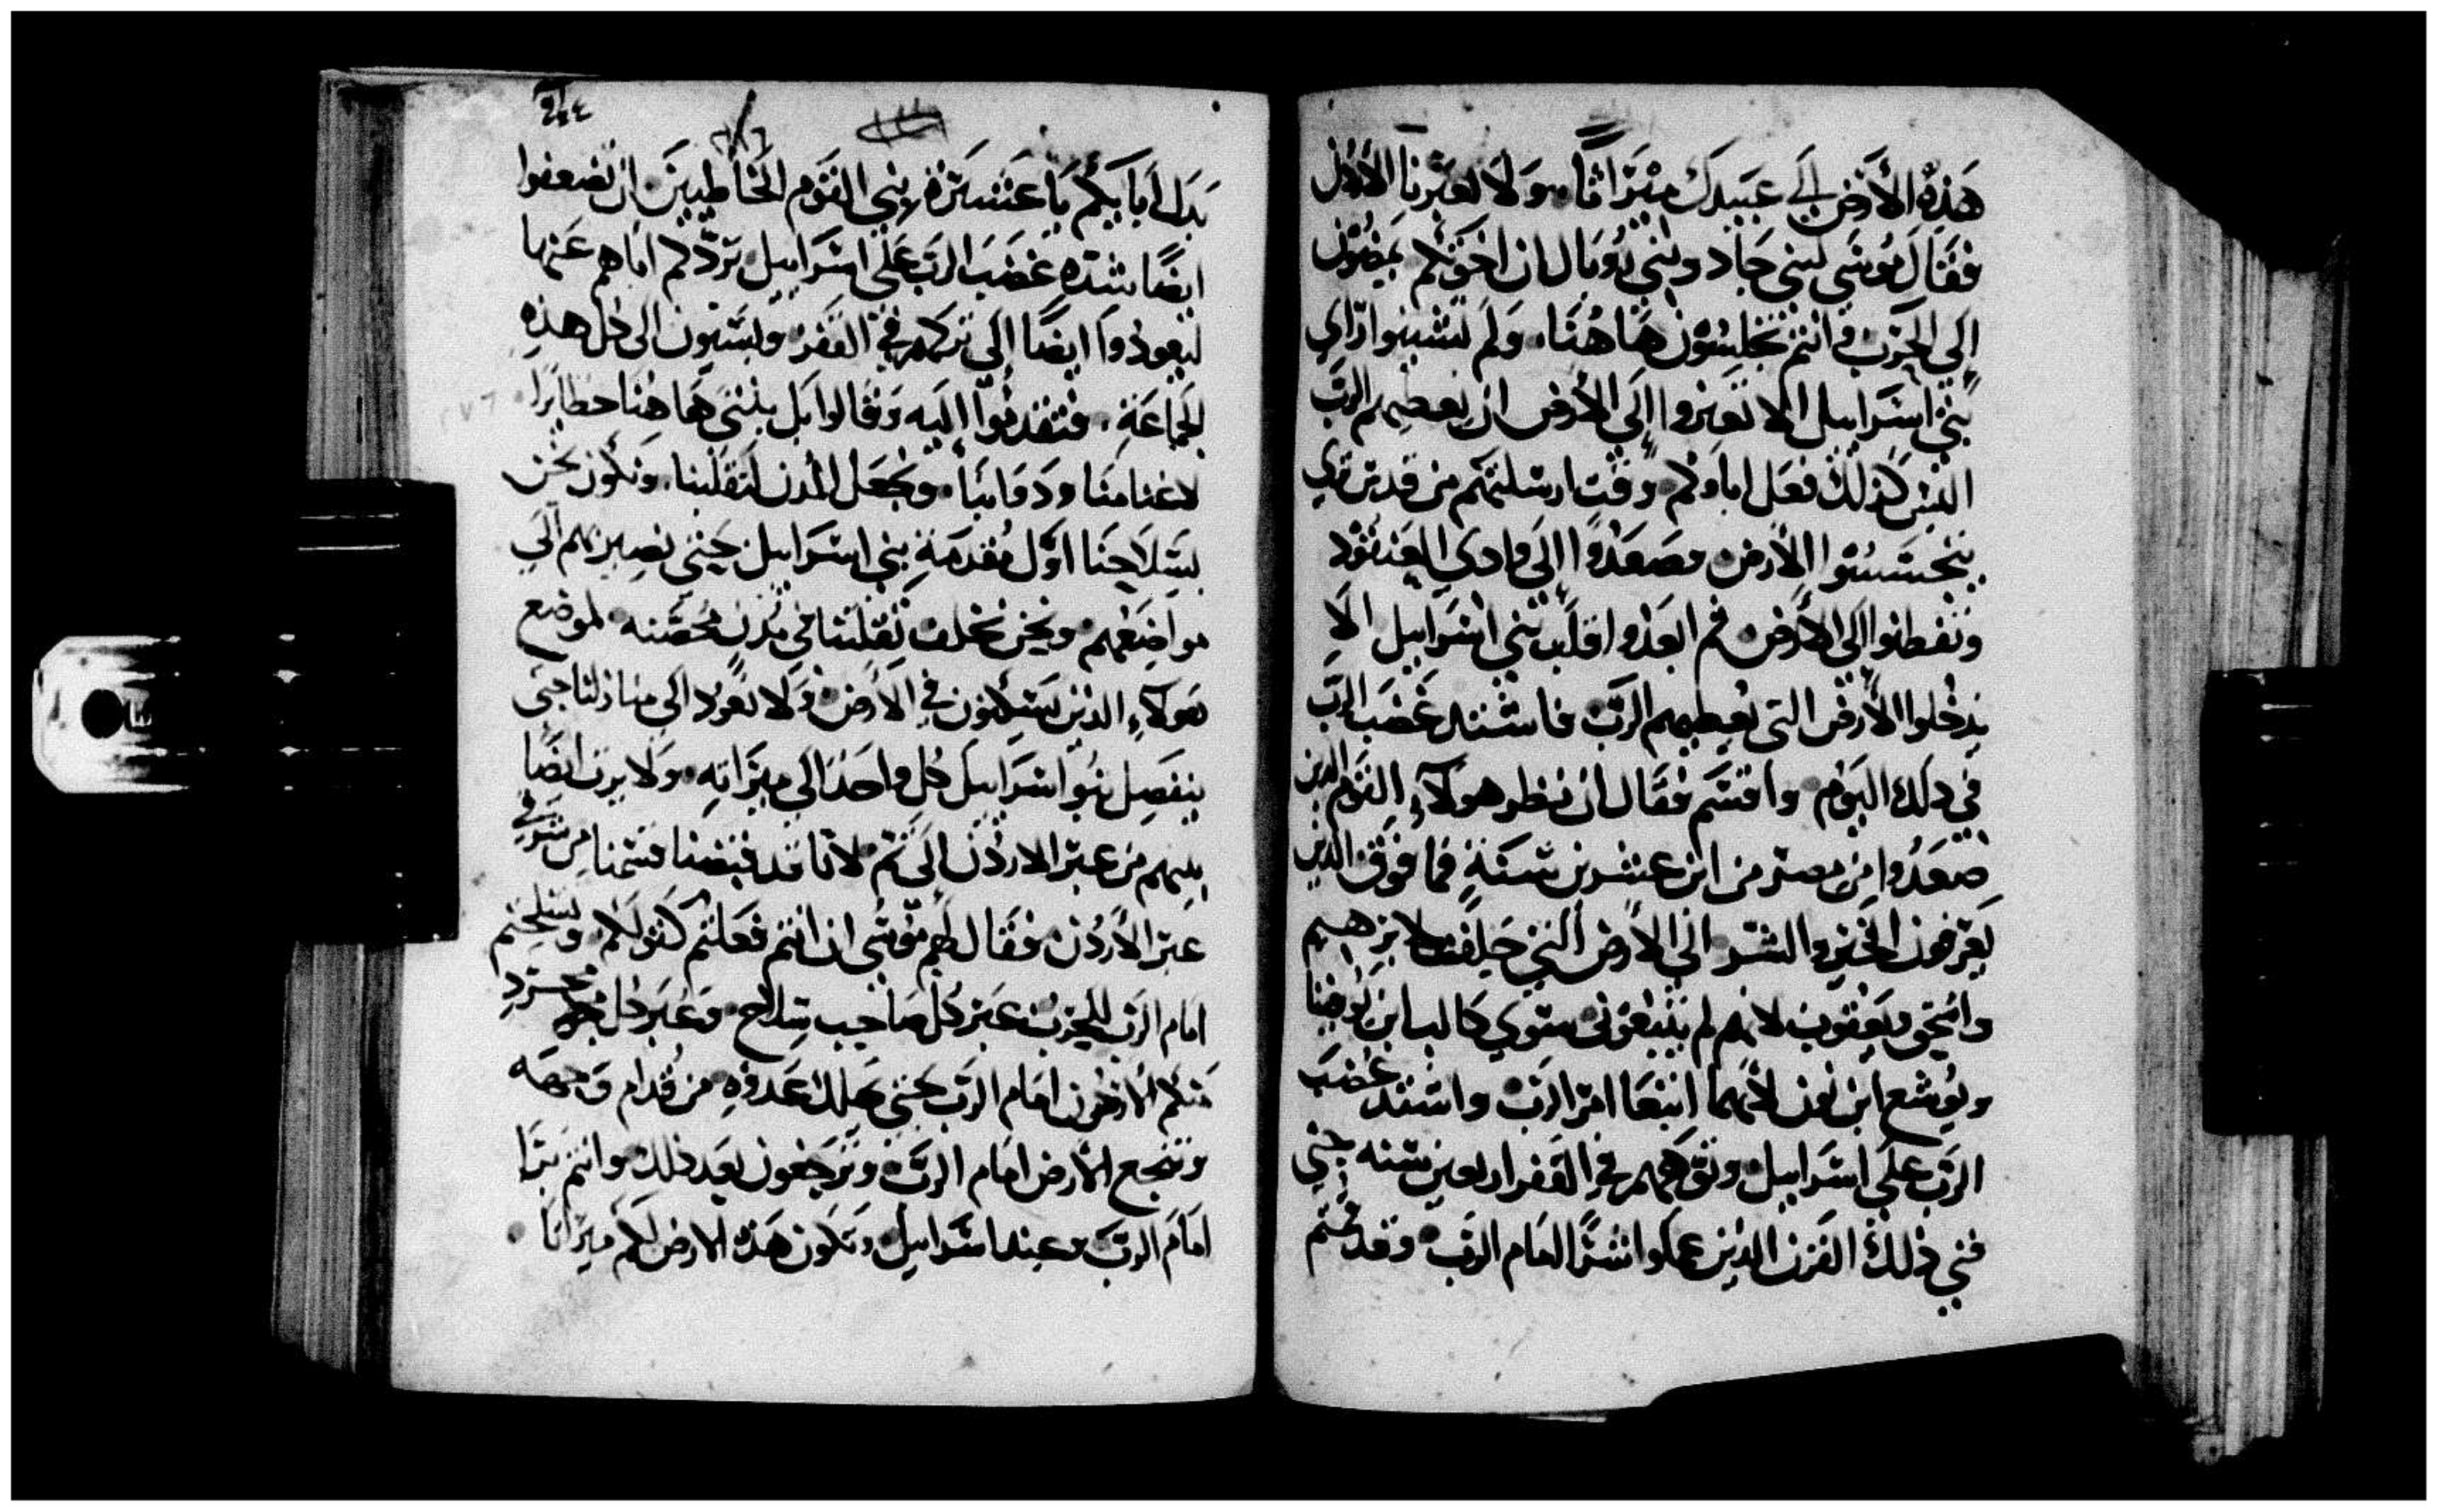 هَذِهِ الأَرْضَ إلَى عَبيدِكَ مِيْرَاثًا. وَلَا تُعَبِّرنَا الأُرْدُنَّ
فقَالَ مُوسَى لبني جَاد وبَنِي رُوبَال ان اخوَتكُم يَمضُون
إلَى الحَرب وانتم تجلِسُون هَاهُنَا. وَلِمَ تُشتتوا رَاي
بَنِي اسرَاييل الا تعبروا إلَى الأرض ان يعطِيهم الرَبّ
اليس كذلك فعَل اباوكم وقت ارسلتهم من قدس برني
يتجَسَسُوا الأرض وصَعَدُوا إلَى وادي العنقُود
وتفطنوا إلَى الأرض ثم ابعَدُوا قلب بني اسرَاييل الَا
يدخُلوا الأرض التي يُعطِيهم الربّ فاشتد غَضَب الرَبّ
في ذلك اليَوْم واقسَم فقَال ان نظر هولآءِ القَوْم الدين
صَعَدُوا مِن مصر من ابن عشرين سَنَةٍ فما فوق الدين
يَعرفون الخَير والشر الَى الأرض التي حَلِفت لابرهيم
واسحق ويَعقوب لانهم لم يتبعُونى سوي كالب ابن يُوفنا
ويُوشع ابن نون لأنهما اتبعَا امر الرب واشتد غضَب
الرَبّ علَى اسرَاييل وتوَّههم في القَفر اربعين سنه حتي
فني ذلك القَرن الدين عملوا الشر امام الرَب وقد قمتُم
بَدَل ابَايكُم يَا عَشرَة بني القَوم الخاطيين ان تضعفوا
ايضًا شدّه غضَب الربّ علَى اسرَاييل تردكم اباهم عَنها
ليعودُوا ايضًا إلَى تركهم في القَفر وتسيون الَى كل هذِهِ
الجماعَةِ. فتقدمُوا إليه وَقالوا بَل نبني هَا هُنا حظايرًا
لاغنامنَا ودَوابنَا. ونجعَل المدن لثقَلنا. ونكون نحن
بسلَاحِنَا اوَّل مُقدمَةِ بني اسرَاييل حتي نصيرهم الَي
مواضِعهم ونحن نخلف ثقلنا في مُدن محُصَّنه لموضع
هَولآءِ الذين يسكنون في الأرض وَلَا نعُود الَى منازلنا حتى
ينفصِل بنُوا اسرَاييل كل واحد الَى ميرَاثهِ. وَلا يرث ايضًا
بينهم من عبر الاردُن الَى ثم لانا قد قبضنا قسمنا من شرقي
عبر الأُردُن فقَال لهم مُوسى ان انتم فعَلتُم كقَولكُم وتسلحتم
امام الرَبّ للحَرب عَبرَ كُلّ صَاحِب سِلَاح وَعَبَر كل مجَرد
منكم الاردُن امَام الربّ حتى يهلك عَدوهِ من قُدام وَجهَه
وترجع الأرض امَام الربّ وترجعون بعد ذلك وانتم بَرَّا
امَامَ الربّ وعند اسرَاييل وتكون هَذه الارض لكم ميرَاثا